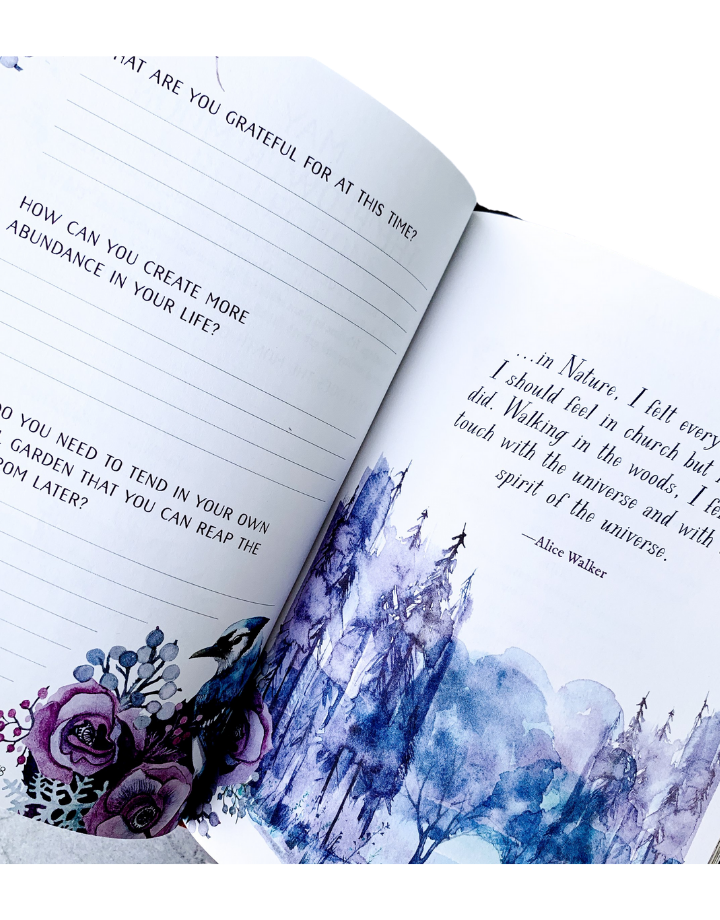 HAT ARE YOU GRATEFUL FOR AT THIS TIME?
HOW CAN YOU CREATE MORE
ABUNDANCE IN YOUR LIFE?
DO YOU NEED TO TEND IN YOUR OWN
GARDEN THAT YOU CAN REAP THE
ROM LATER?
8
...in Nature, I felt every
I should feel in church but
did. Walking in the woods, I
touch with the universe and with
spirit of the universe.
—Alice Walker